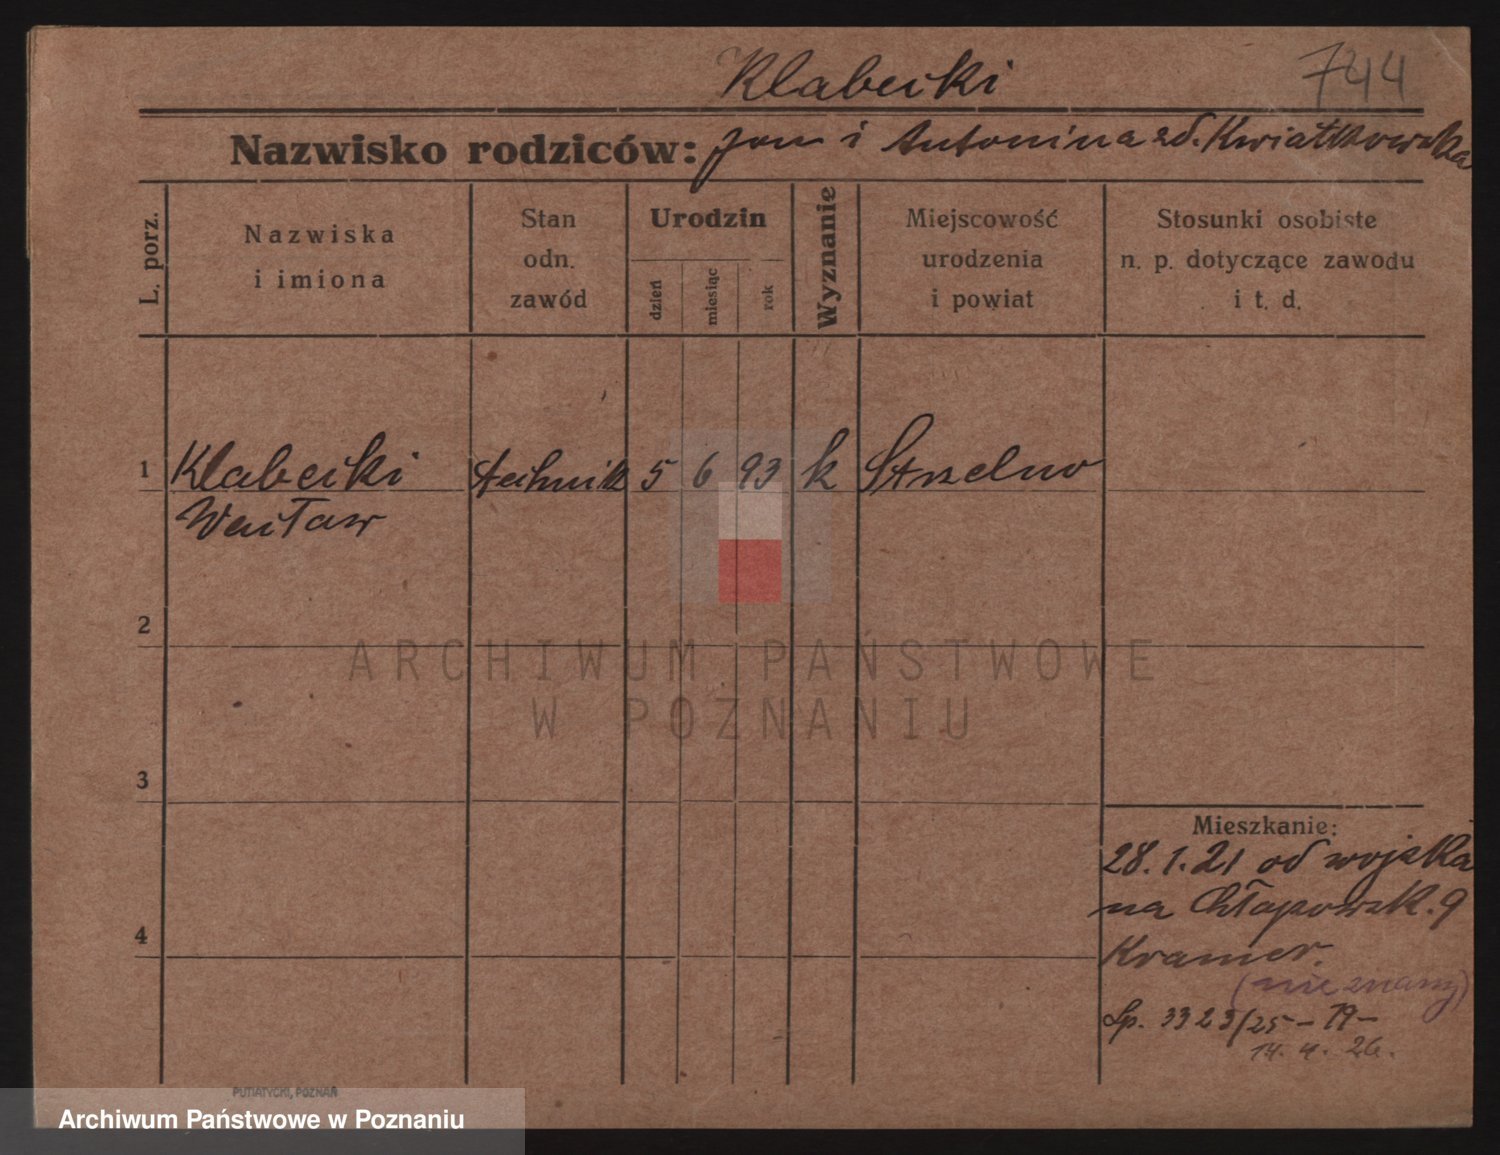 Klabecki 744
Nazwisko rodziców: Jan i Antonina zd. Kwiatkowska
L. porz.
Nazwiska
i imiona
Stan
odn.
zawód
Urodzin
dzień
miesiąc
rok
Wyznanie
Miejscowość
urodzenia
i powiat
Stosunki osobiste
n. p. dotyczące zawodu
i t. d.
1 Klabecki technik 5 6 93 k Strzelno
Wacław
2
ARCHIWUM PAŃSTWOWE
W POZNANIU
3
Mieszkanie:
28.1.21 od wojska
na Chłapowsk. 9
4
Kramer.
(nie znany)
Sp. 3323/25 - 19 -
14. 4. 26.
PUTIATYCKI, POZNAŃ
Archiwum Państwowe w Poznaniu